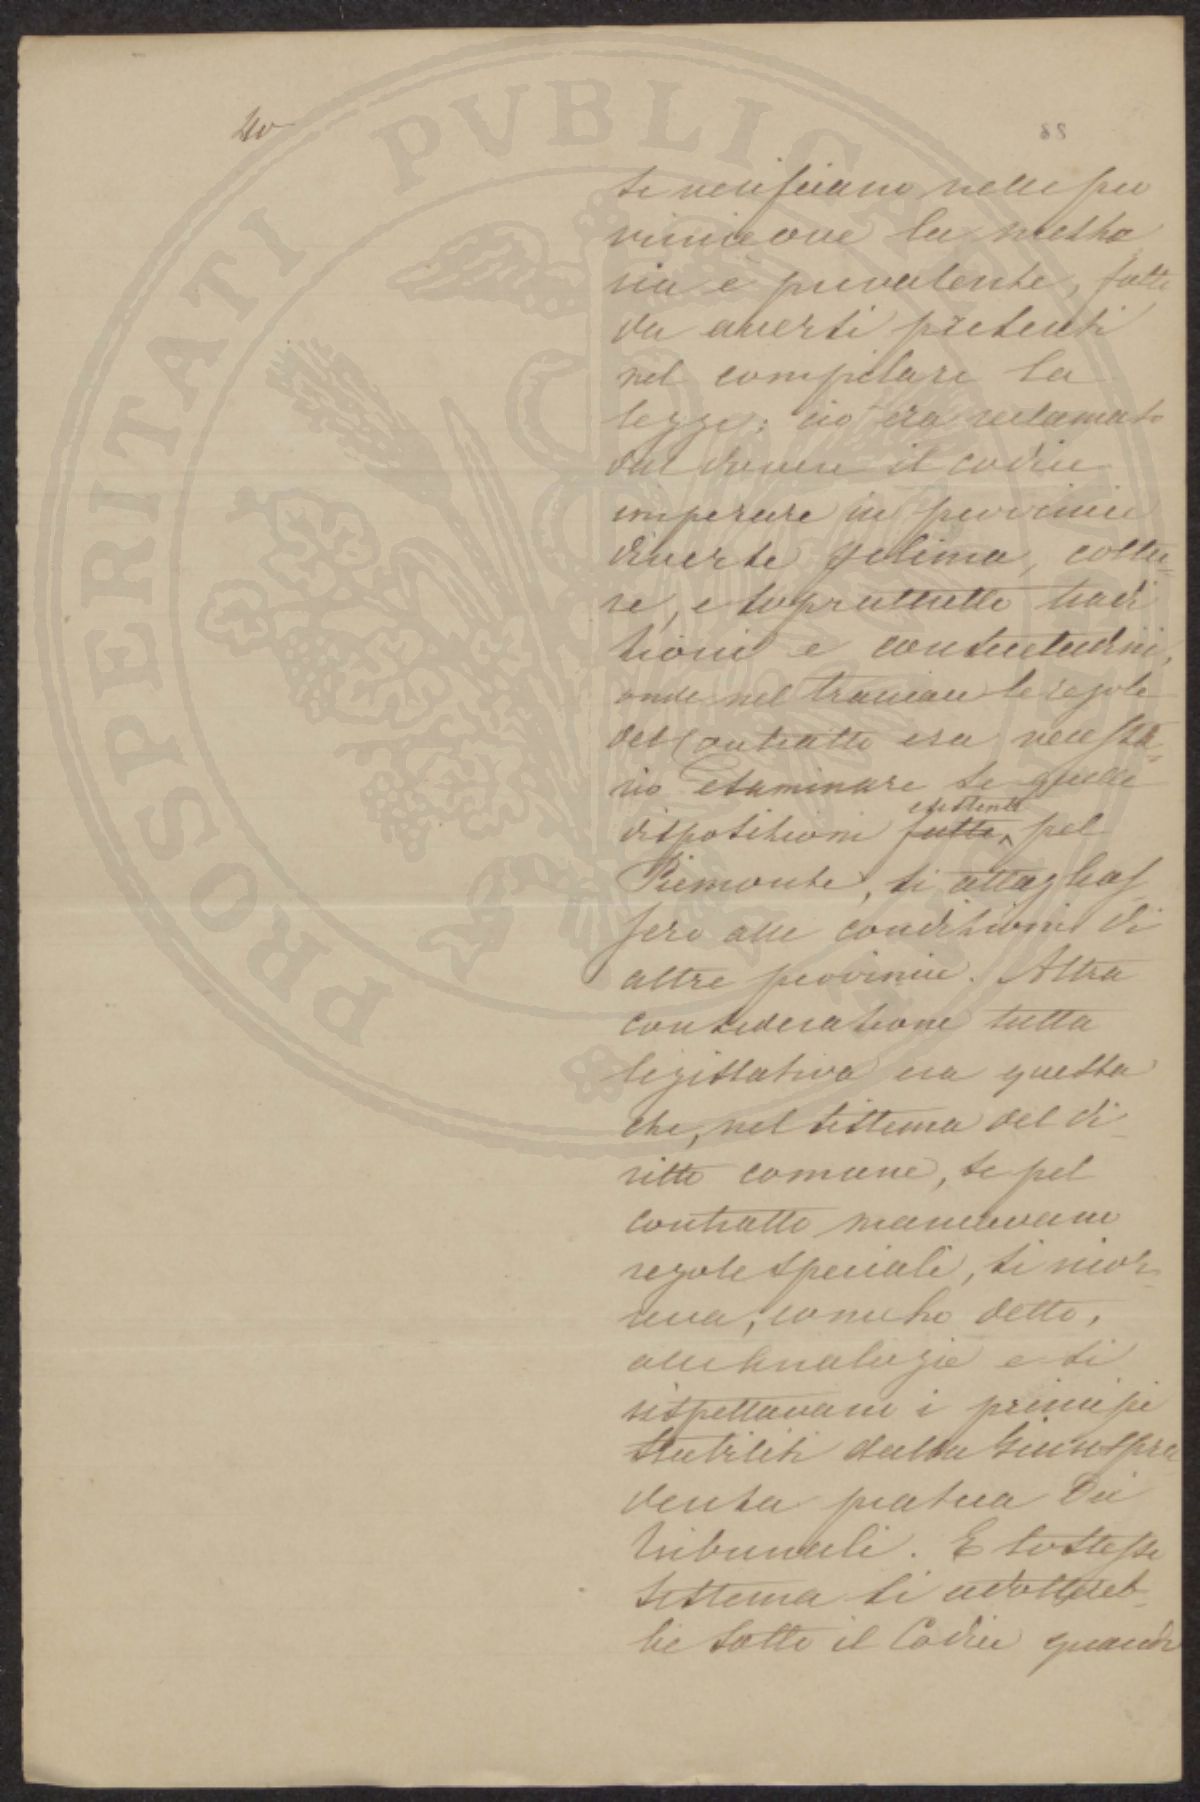 40
88
si verificano nelle pro
vincie ove la mezza
ria è prevalente, fatti
da aversi presenti
nel compilare la
legge; ciò era reclamato
dal dovere il codice
imperare in provincie
diverse p clima, coltu-
re, e soprattutto tradi
zioni e consuetudini,
onde nel tracciare le regole
del contratto era necessa-
rio esaminare se quelle
disposizioni fatte esistenti pel
Piemonte, si attaglias
sero alle condizioni di
altre provincie. Altra
considerazione tutta
legislativa era questa
che, nel sistema del di-
ritto comune, se pel
contratto mancavano
regole speciali, si ricor-
reva, come ho detto,
alle analogie e si
rispettavano i principi
stabiliti dalla Giurispru
denza pratica dei
tribunali. E lo stesso
sistema si adottereb-
be sotto il Codice quando
PROSPERITATI PVBLICAE